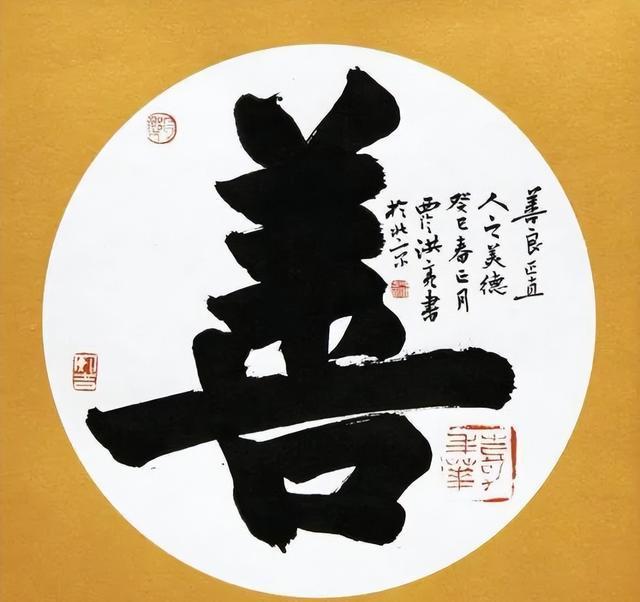 善
善良正直
人之美德
癸巳春正月
西泠洪亮书
於北京